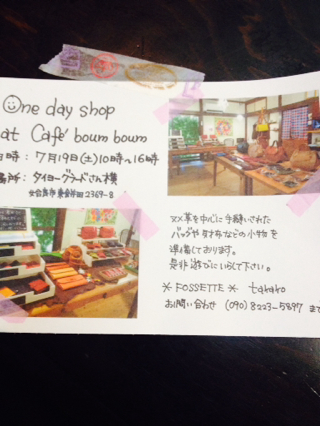 One day shop
at Café boum boum
日時：7月19日(土)10時〜16時
場所：タイヨーグラードさん横
東金井田2369-8
ヌメ革を中心に手縫いされた
バッグやお財布などの小物を
準備しております。
是非遊びにいらして下さい。
＊FOSSETTE＊ takako
お問い合わせ (090)8223-5897 まで